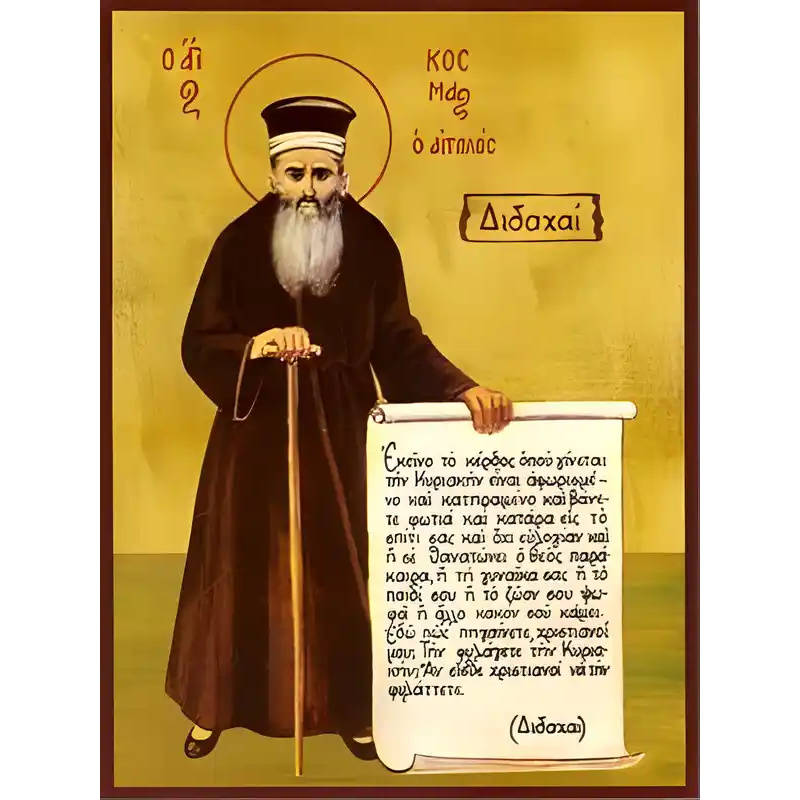 Ο ἅγι
ος
ΚΟΣ
Μας
ὁ αἰτωλός
Διδαχαί
Ἐκεῖνο τό κέρδος ὁπού γίνεται
τήν Κυριακήν εἶναι ἀφωρισμέ-
νο καί κατηραμένο καί βάνε-
τε φωτιά καί κατάρα εἰς τό
σπίτι σας καί ὄχι εὐλογίαν καί
ἤ σέ θανατώνει ὁ θεός παρά-
καιρα, ἤ τή γυναῖκα σας ἤ τό
παιδί σου ἤ τό ζῶον σου ψω-
φᾶ ἤ ἄλλο κακον σοῦ κάμει.
Ἐδῶ πῶς πηγαίνετε, χριστιανοί
μου; Τήν φυλάγετε τήν Κυρια-
κήν; Ἄν εἶσθε χριστιανοί νά τήν
φυλάττετε.
(Διδαχαί)